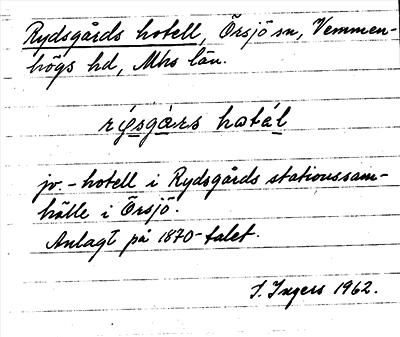 Rydsgårds hotell, Örsjö sn, Vemmen-
högs hd, Mhs län.
rẏsgárs hatál
jv.-hotell i Rydsgårds stationssam-
hälle i Örsjö.
Anlagt på 1870-talet.
I. Ingers 1962.